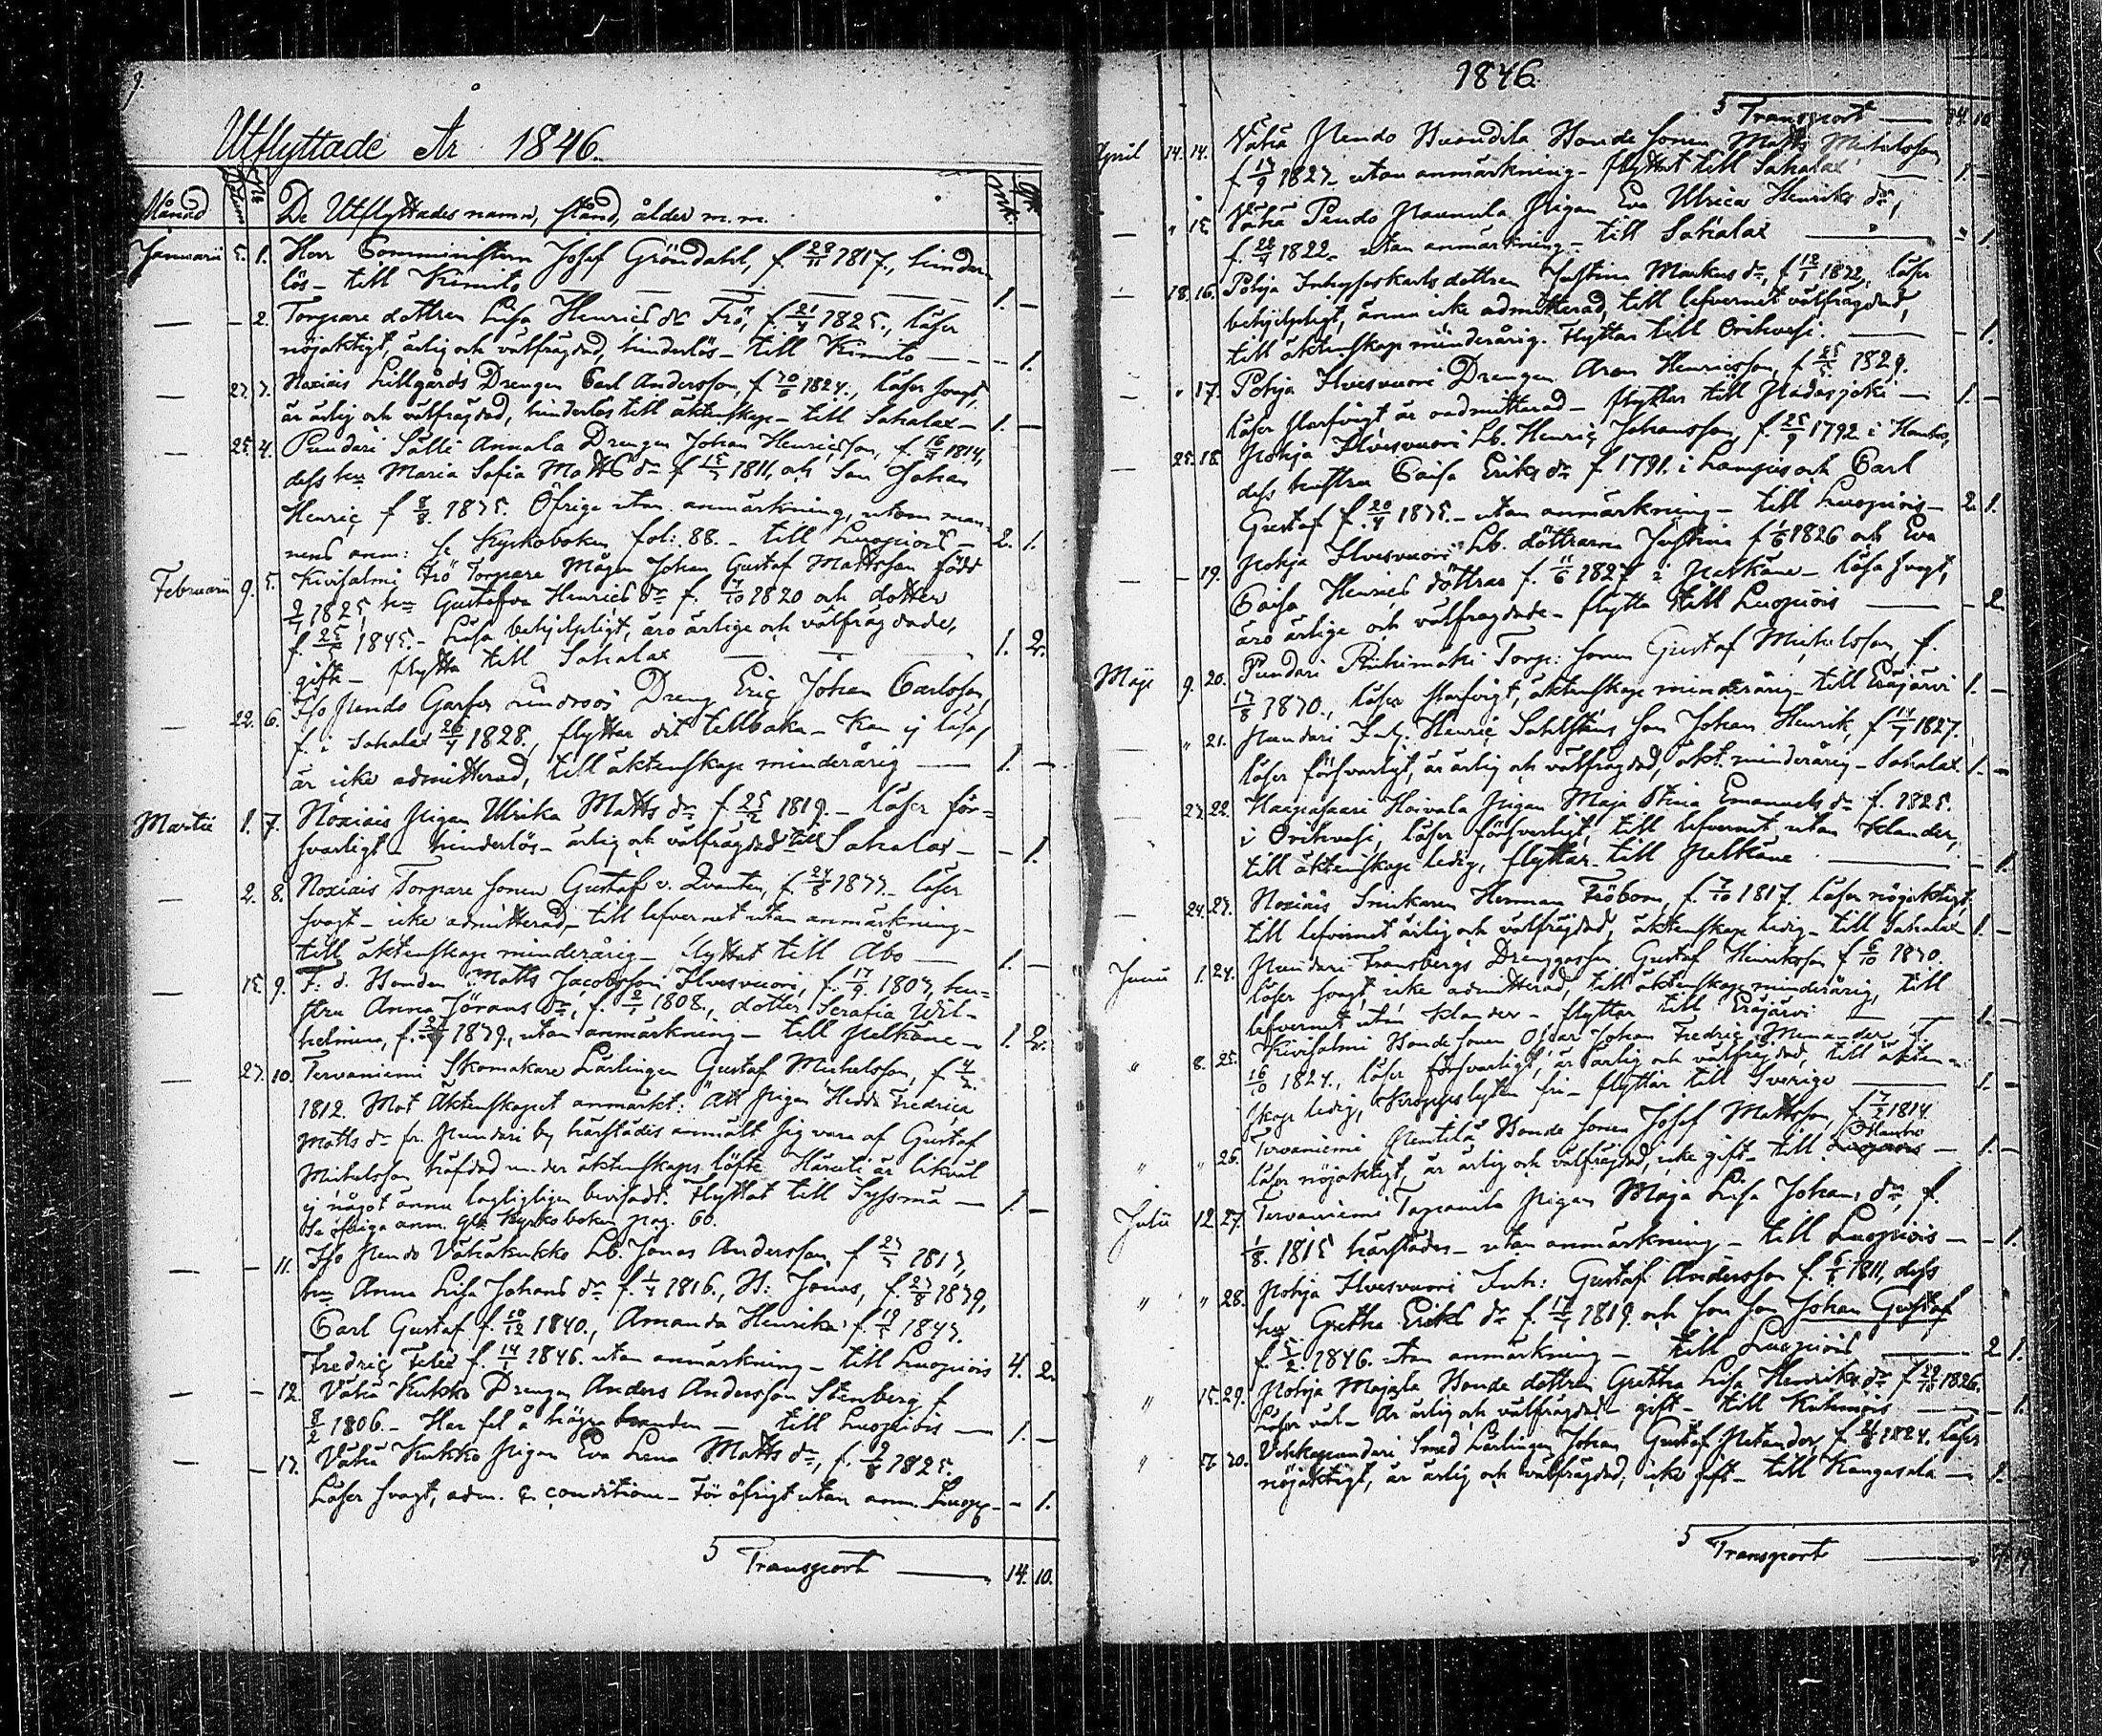 Utflyttade År 1846.
Månad Datum No De Utflyttades namn, stånd, ålder m. m. Mk. Qk.
Januarii 5. 1. Herr Comministern Josef Gröndahl, f. 28/11 1817, hinder-
lös - till Kimito — 1. —
— — 2. Torpare dottren Lisa Henrics dr Frö, f. 21/4 1825., läser
nöjaktigt, ärlig och välfrägdad, hinderlös - till Kimito — — 1.
— 23. 3. Noxiais Lillgårds Drengen Carl Andersson, f. 30/6 1824., läser svagt,
är ärlig och välfrägdad, hinderlös till äktenskap - till Sahalax — 1. —
— 25. 4. Pundari Sälli Annala Drengen Johan Henricsson, f. 16/ 1814,
dess hu Maria Sofia Matts dr f 15/ 1811, och Son Johan
Henric f 8/8 1835. Öfrige utan anmärkning, utom man-
nens anm: se Kyrkoboken fol: 88. - till Luopiois — 2. 1.
Februarii 9. 5. Kivisalmi Frö Torpare Mågen Johan Gustaf Mattsson född
1825, hu Gustafva Henrics dr f. /10 1820 och dotter
f. 25/ 1845. - Läsa behjelpligt, äro ärlige och välfrägdade,
gifte - flytta till Sahalax — 1. 2.
— 22. 6. Iso Pendo Dreng Eric Johan Carlsson,
f. i Sahalax 26/4 1828., flyttar dit tillbaka - Kan ej läsa,
är icke admitterad, till äktenskap minderårig — 1. —
Martii 1. 7. Noxiais Pigan Ulrika Matts dr f. 25/2 1819. - läser för-
svarligt - hinderlös - ärlig och välfrägdad till Sahalax — — 1.
— 2. 8. Noxiais Torpare sonen Gustaf v. Qvanten, f. 24/ 1833. - läser
svagt - icke admitterad - till lefvernet utan anmärkning -
till äktenskap minderårig - flyttat till Åbo — 1. —
— 15. 9. F: d. Bonden Matts Jacobsson Ilvesvuori, f. 17/9 1803, hu-
stru Anna Jörans dr, f. 2/ 1808., dotter Serafia Wil-
helmina, f. 1839., utan anmärkning - till Pelkäne — 1. 2.
— 23. 10. Tervaniemi Skomakare Lärlingen Gustaf Michelsson, f 4/
1812. Mot Äktenskapet anmärkt: Att Pigan Hedda Fredrica
Matts dr fr. Pundari by härstädes anmält sig vara af Gustaf
Michelsson häfdad under äktenskaps löfte. Häruti är likväl
ej något ännu lagligligen bevisadt. Flyttat till Sysmä — 1. —
Se öfriga anm. Kyrkoboken pag. 60.
— — 11. Iso Pendo Vähäkukko Lb. Jonas Andersson f 23/ 1813,
hu Anna Lisa Johans dr f. 1/ 1816., B: Jonas, f. 23/8 1839,
Carl Gustaf f. 10/12 1840., Amanda Henrika f. 19/ 1843.
Fredric Felix f. 14/1 1846. utan anmärkning - till Luopiois 4. 2.
— — 12. Vähä Kukko Drengen Anders Andersson Stenberg f
8/2 1806. - Har fel å högra handen — till Luopiois — 1. —
— — 13. Vähä Kukko Pigan Eva Lena Matts dr, f. 9/8 1825.
Läser svagt, adm. conditione - För öfrigt utan anm. Luop. — — 1.
Transport — 14. 10.
1846
Transport — 14. 10.
April 14. 14. Vähä Pendo Huandila Bonde sonen Matts Michelsson
f 17/9 1827 - utan anmärkning - flyttat till Sahalax — 1. —
— " 15. Vähä Pendo Pigan Eva Ulrica Henriks dr,
f. 22/ 1822 - utan anmärkning - till Sahalax — " 1.
— 18. 16. Pohja Inhysfeskarls dottren Justina Markus dr, f 12/1 1832, läser
behjelpligt, ännu icke admitterad, till lefvernet välfrägdad,
till äktenskap minderårig. Flyttar till Orihvesi. — — 1.
— " 17. Pohja Ilvesvuori Drengen Aron Henricsson, f 25/5 1829.
läser är oadmitterad - flyttar till Padasjoki — 1. —
— 25. 18. Pohja Ilvesvuori Lb. Henric Johansson, f. 25/9 1792 i Hauho,
dess hustru Caisa Eriks dr f 1791. i Lampis och Carl
Gustaf f. 20/ 1835. - utan anmärkning - till Luopiois - 2. 1.
— — 19. Pohja Ilvesvuori Lb. döttrarna Justina f 1/6 1826 och Eva
Caisa Henrics döttrar f. 11/6 182 i Pelkäne - läsa svagt,
äro ärlige och välfrägdade - flytta till Luopiois — — 2.
Maji 9. 20. Pundari Riihimäki Torp: sonen Gustaf Michelsson, f.
17/8 1830., läser äktenskap minderårig - till Eräjärvi 1. —
— " 21. Pundari Inh. Henric Sahlsténs Son Johan Henrik, f 14/ 1827.
läser försvarligt, är ärlig och välfrägdad, äkt. minderårig - Sahalax 1. —
— 23. 22. Haapasaari Hoivala Pigan Maja Stina Emanuels dr f. 1825.
i Orihvesi, läser försvarligt, till lefvernet utan klander,
till äktenskap ledig, flyttar till Pelkäne — — 1.
— 24. 23. Noxiais Snickaren Herman Fröbom, f. /10 1817. läser nöjaktigt,
till lefvernet ärlig och välfrägdad, äktenskap ledig - till Sahalax 1. —
Junii 1. 24. Pundari Fransbergs Drenggossen Gustaf Henriksson f 6/10 1830.
läser svagt, icke admitterad, till äktenskap minderårig, till
lefvernet utan klander - flyttar till Eräjärvi — 1. —
" 8. 25. Kivisalmi Bonde sonen Johan Fredric Menander, f.
16/10 1824., läser försvarligt, är ärlig och välfrägdad, till äkten-
skap ledig, kroppslyten fri - flyttar till Sverige — 1. —
" " 26. Tervaniemi Penttilä Bonde sonen Josef Mattsson, f. 7/2 1814
läser nöjaktigt, är ärlig och välfrägdad, icke gift - till Luopiois Hauho — 1. —
Julii 12. 27. Tervaniemi Tapanila Pigan Maja Lisa Johans dr f.
1/8. 1815 härstädes - utan anmärkning - till Luopiois — — 1.
" " 28. Pohja Ilvesvuori Inh: Gustaf Andersson f. 6/ 1811, dess
hu Gretha Eriks dr f. 17/ 1819 och son Johan Gustaf
f. 5/2 1846. utan anmärkning - till Luopiois — 2. 1.
" 15. 29. Pohja Majala Bonde dottren Gretha Lisa Henriks dr f 22/10 1826.
Läser väl - Är ärlig och välfrägdad - gift - till Kuhmois — — 1.
" 30. Vehkapundari Smed Lärlingen Johan Gustaf Petander, f 1824. läser
nöjaktigt, är ärlig och välfrägdad, icke gift - till Kangasala — 1.
Transport —